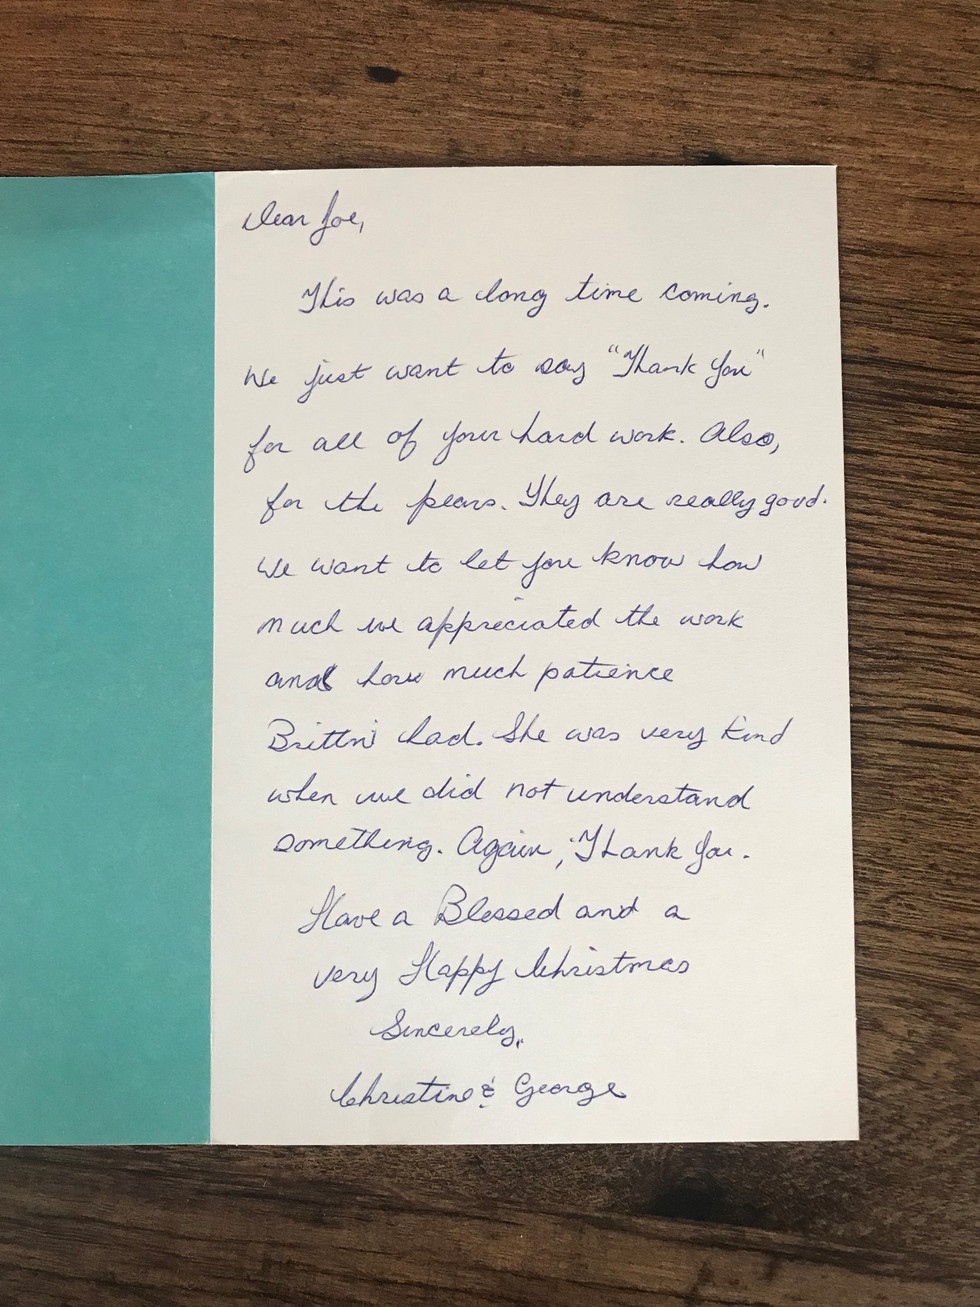 Dear Joe,
This was a long time coming.
We just want to say "Thank You"
for all of your hard work. Also,
for the pears. They are really good.
We want to let you know how
much we appreciated the work
and how much patience
Brittni had. She was very kind
when we did not understand
something. Again, Thank You.
Have a Blessed and a
very Happy Christmas
Sincerely,
Christine & George